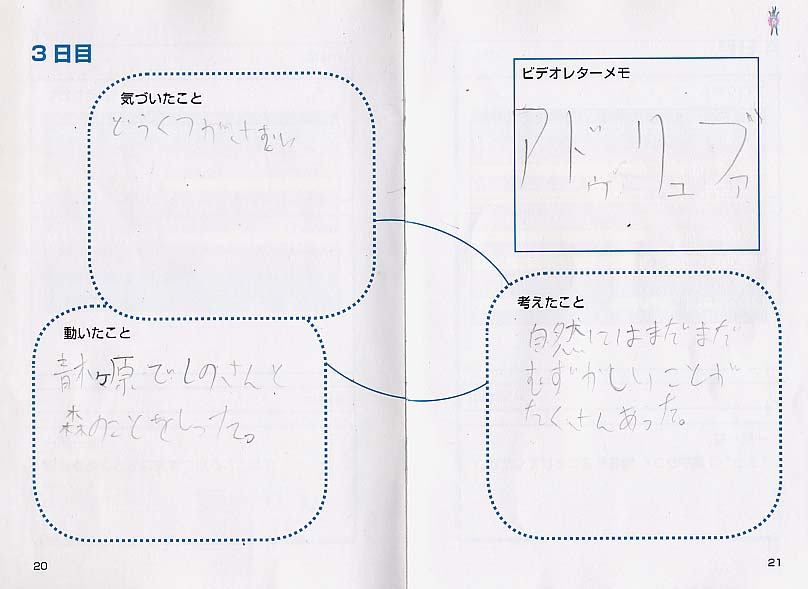 3日目
気づいたこと
どうくつがさむい
動いたこと
青木ヶ原でしのさんと
森のことをしった。
20
ビデオレターメモ
アドゥリュブァ
考えたこと
自然にはまだまだ
むずかしいことが
たくさんあった。
21